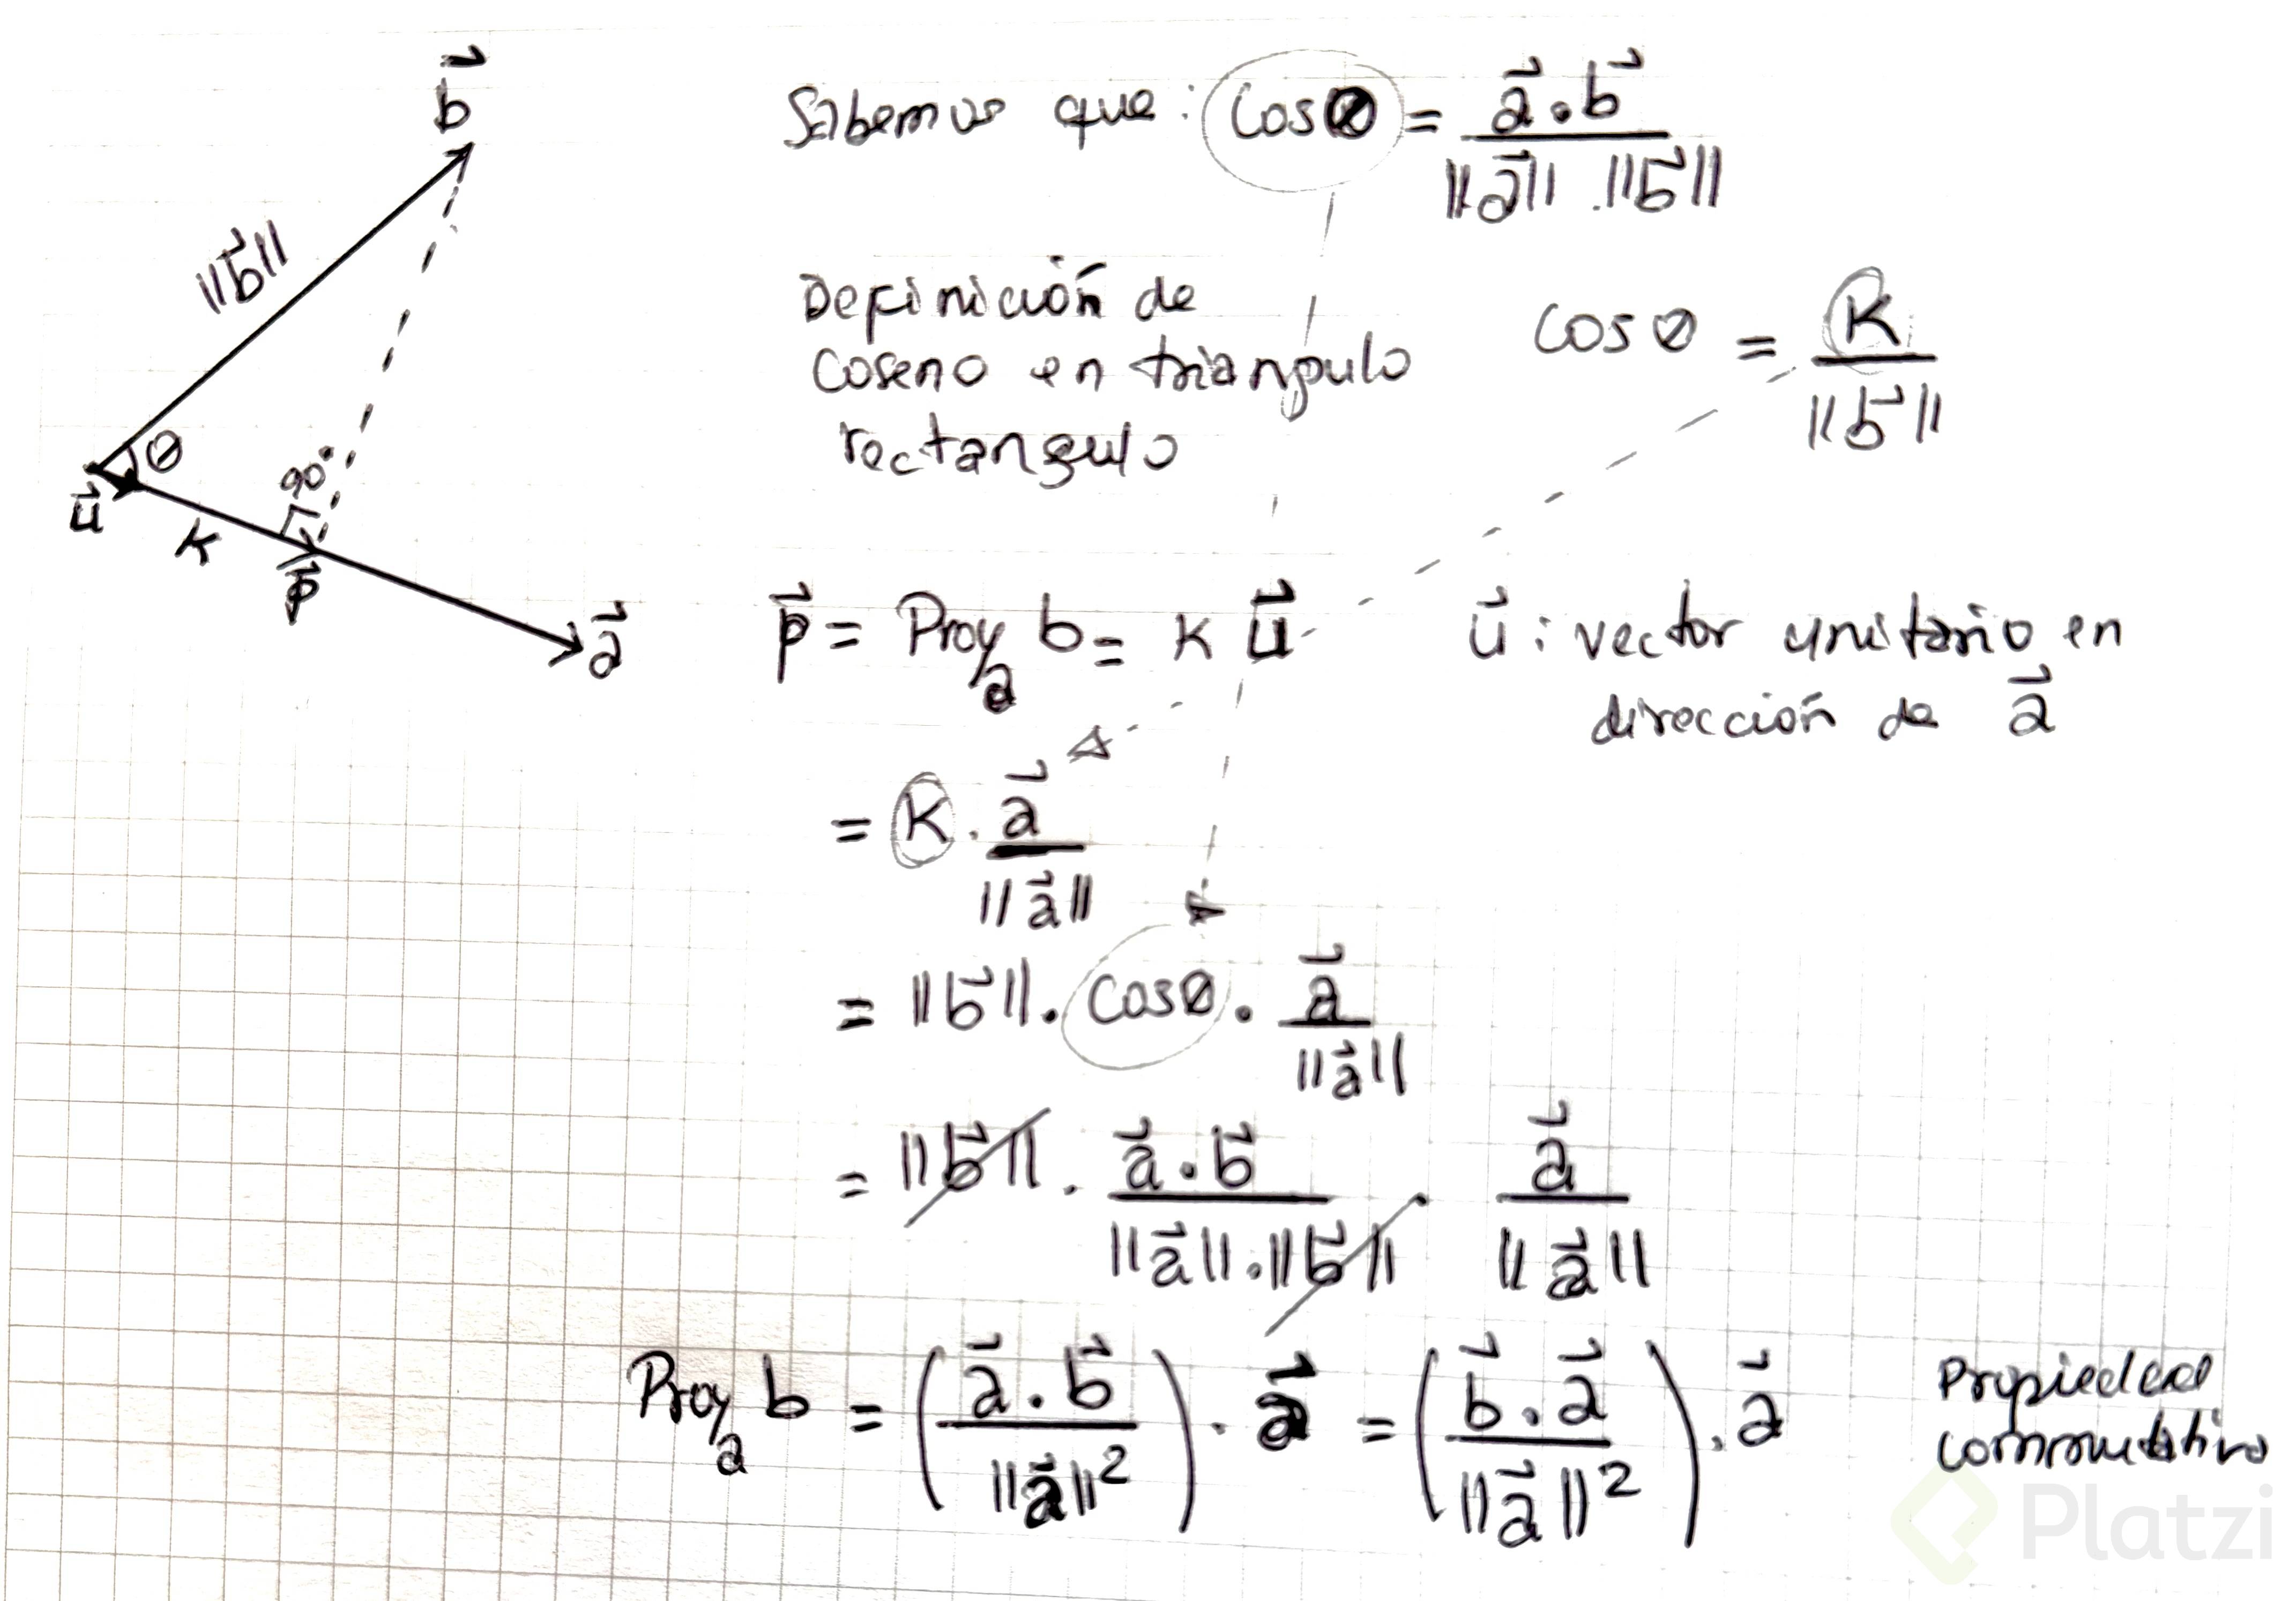 b⃗
||b⃗||
θ
90°
u⃗
k
p⃗
a⃗
Sabemos que: cosθ = a⃗ . b⃗ / ||a⃗|| . ||b⃗||
Definición de
coseno en triangulo
rectangulo
cos θ = K / ||b⃗||
p⃗ = Proy_a b = K u⃗
u⃗ : vector unitario en
dirección de a⃗
= K . a⃗ / ||a⃗||
= ||b⃗|| . cosθ . a⃗ / ||a⃗||
= ||b⃗|| . a⃗ . b⃗ / ||a⃗|| . ||b⃗|| . a⃗ / ||a⃗||
Proy_a b = ( a⃗ . b⃗ / ||a⃗||² ) . a⃗ = ( b⃗ . a⃗ / ||a⃗||² ) . a⃗
Propiedad
conmutativa
Platzi